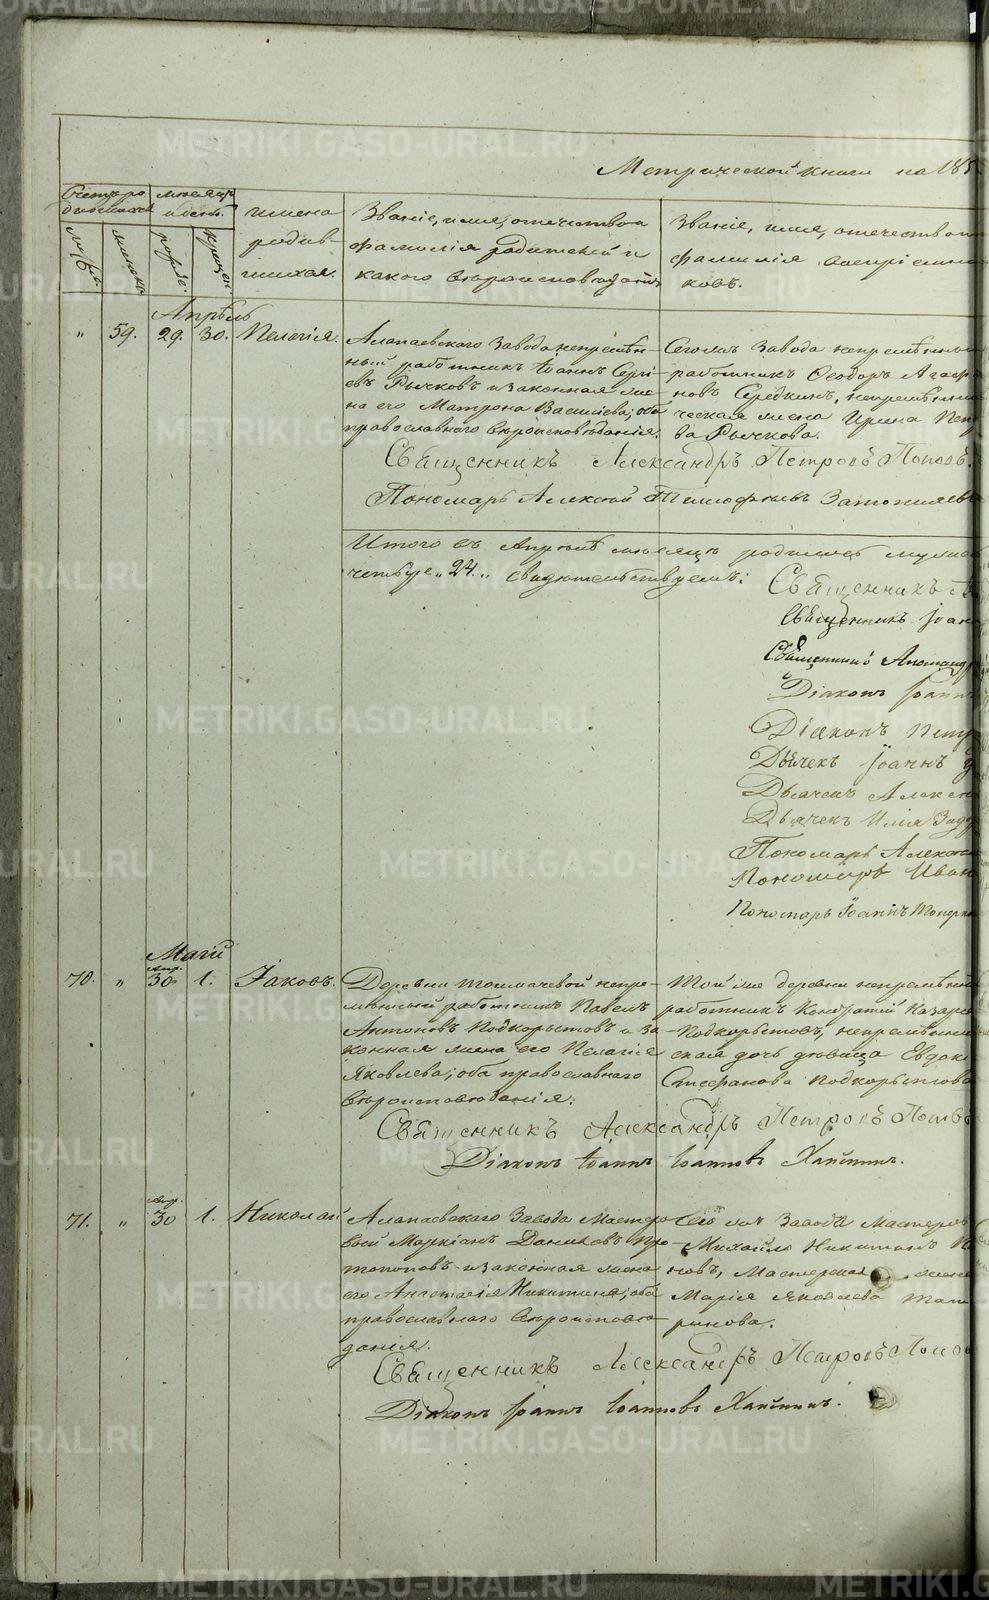 METRIKI.GASO-URAL.RU
Метрической книги на 185
Счетъ ро
дившихся
мѣсяцъ
и день.
имена
родив-
шихся.
Званіе, имя, отечество и
фамилія родителей и
какого вѣроисповѣданія
Званіе, имя, отечество и
фамилія воспріемни
ковъ.
муж.
женск.
рожде.
крещен.
Апрѣль
" 59. 29. 30. Пелагія.
Алапаевскаго Завода непремѣн-
ный работникъ Іоаннъ Сергі-
евъ Рычковъ и законная же-
на его Матрона Васильева; оба
православнаго вѣроисповѣданія.
Сегожъ Завода непремѣнный
работникъ Ѳеодоръ Агафо
новъ Середкинъ, непремѣнни
ческая жена Ирина Петр
ва Рычкова.
Священникъ Александръ Петровъ Поповъ.
Пономарь Алексѣй Тимофѣевъ Затопляевъ
Итого въ Апрѣлѣ мѣсяцѣ родилось муже
четыре „24„ свидѣтельствуемъ:
Священникъ
Священникъ Іоан
Священникъ Александр
Діаконъ Іоаннъ
Діаконъ Петр
Дьячекъ Іоаннъ
Дьячекъ Алексѣ
Дьячекъ Илія
Пономарь Алексѣй
Пономарь Иван
Пономарь Іоаннъ Топорко
Маій
Апр.
70. " 30 1. Іаковъ.
Деревни Толмачевой непре-
мѣнный работникъ Павелъ
Антоновъ Подкорытовъ и за-
конная жена его Пелагія
Яковлева; оба православнаго
вѣроисповѣданія.
Той же деревни непремѣнный
работникъ Кондратій Назаро
Подкорытовъ, непремѣнниче
ская дочь дѣвица Евдокі
Стефанова Подкорытова
Священникъ Александръ Петровъ Поповъ
Діаконъ Іоаннъ Іоанновъ Хлыпинъ.
Апр.
71. " 30 1. Николай
Алапаевскаго Завода Мастеро-
вой Маркіанъ Даниловъ Про-
топоповъ и законная жена
его Анастасія Никитина; оба
православнаго вѣроисповѣ-
данія.
Сего жъ Завода Мастеров
Михайло Никитинъ
новъ, Мастерская жена
Марія Яковлева
ринова.
Священникъ Александръ Петровъ Попов
Діаконъ Іоаннъ Іоанновъ Хлыпинъ.